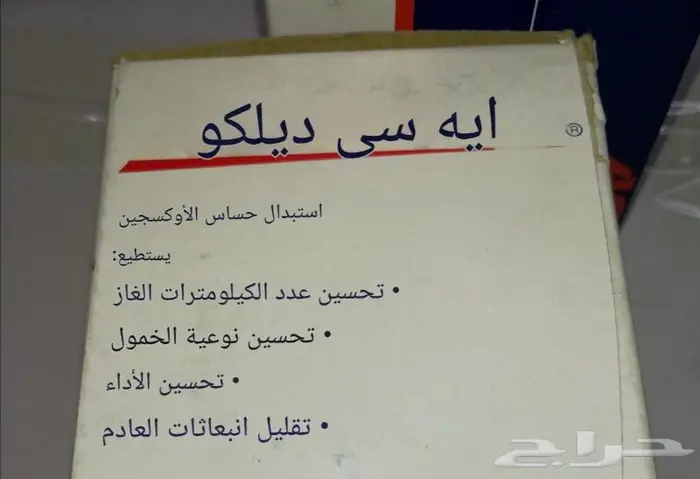 ايه سى ديلكو ®
استبدال حساس الأوكسجين
يستطيع:
• تحسين عدد الكيلومترات الغاز
• تحسين نوعية الخمول
• تحسين الأداء
• تقليل انبعاثات العادم
حراج